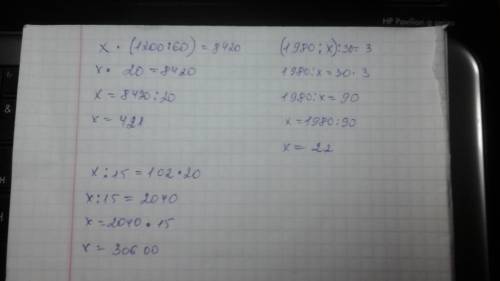 x · (1200:60) = 8420
x · 20 = 8420
x = 8420:20
x = 421
(1980:x):30=3
1980:x=30·3
1980:x=90
x=1980:90
x= 22
x:15=102·20
x:15= 2040
x=2040·15
x= 30600
HP Pavilion